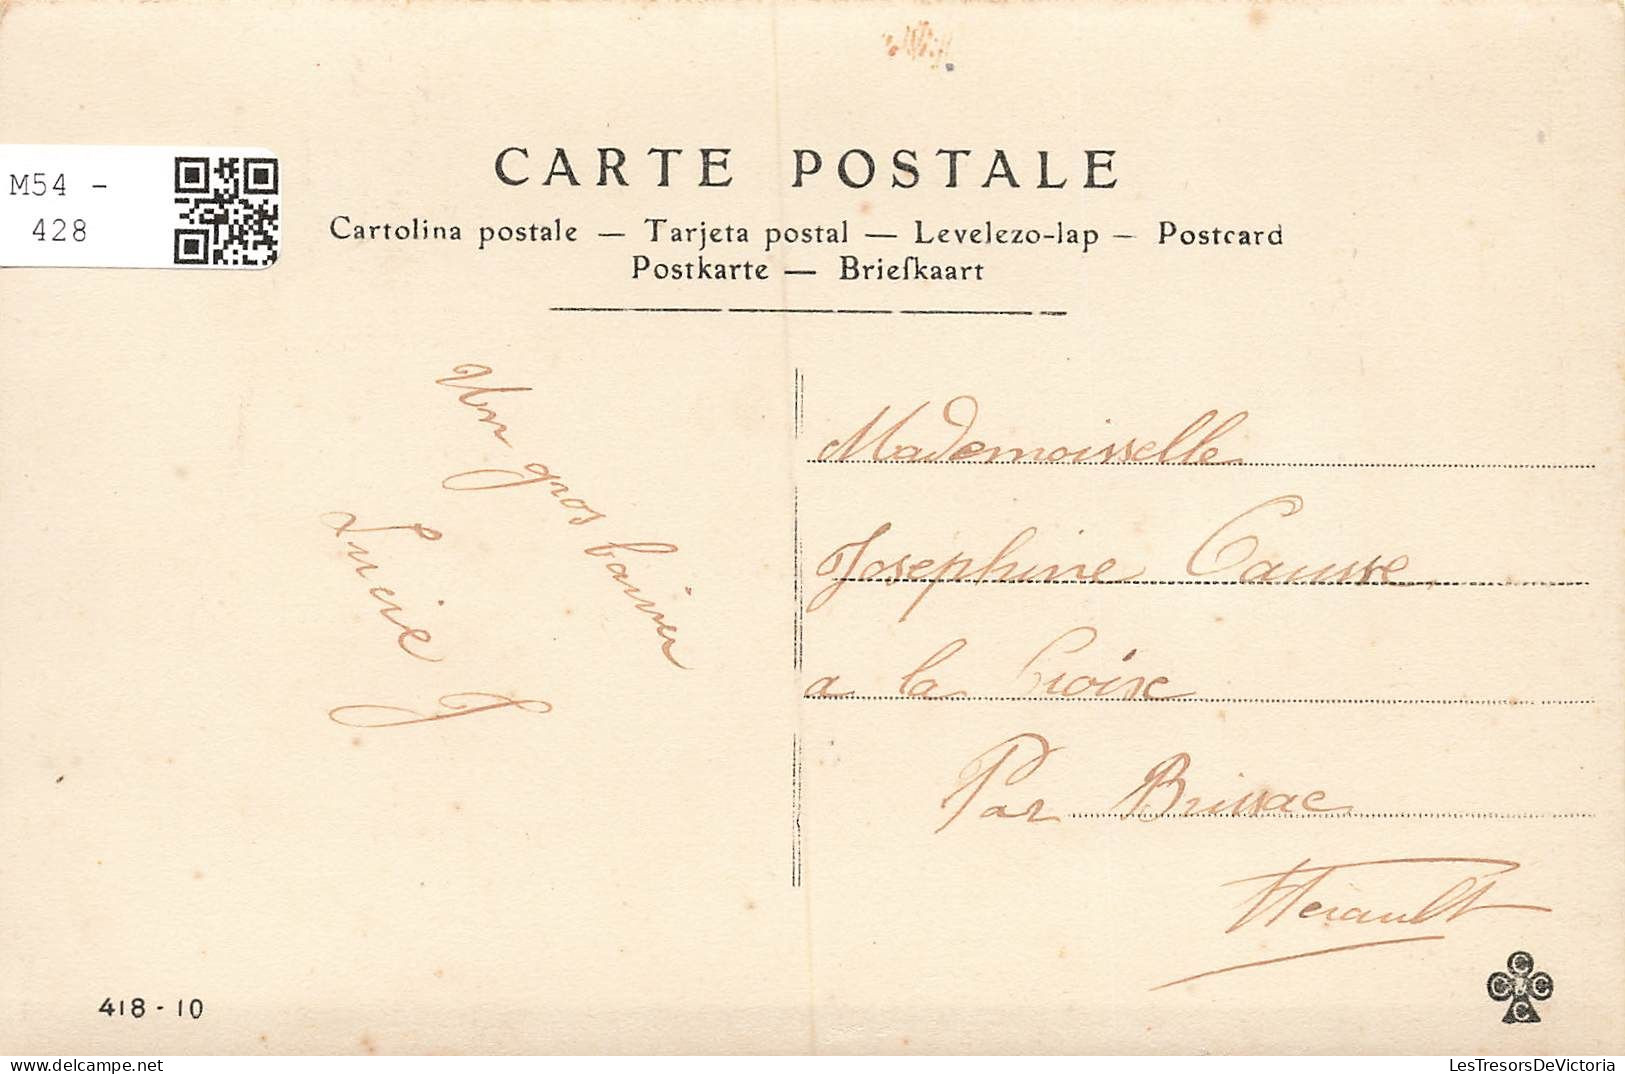 CARTE POSTALE
M54 -
428
Cartolina postale — Tarjeta postal — Levelezo-lap — Postcard
Postkarte — Briefkaart
Un gros baiser
Lucie J
Mademoisselle
Josephine Causse
a la Croise
Par Brissac
Herault
418 - 10
C
C C C
C
LesTresorsDeVictoria.com